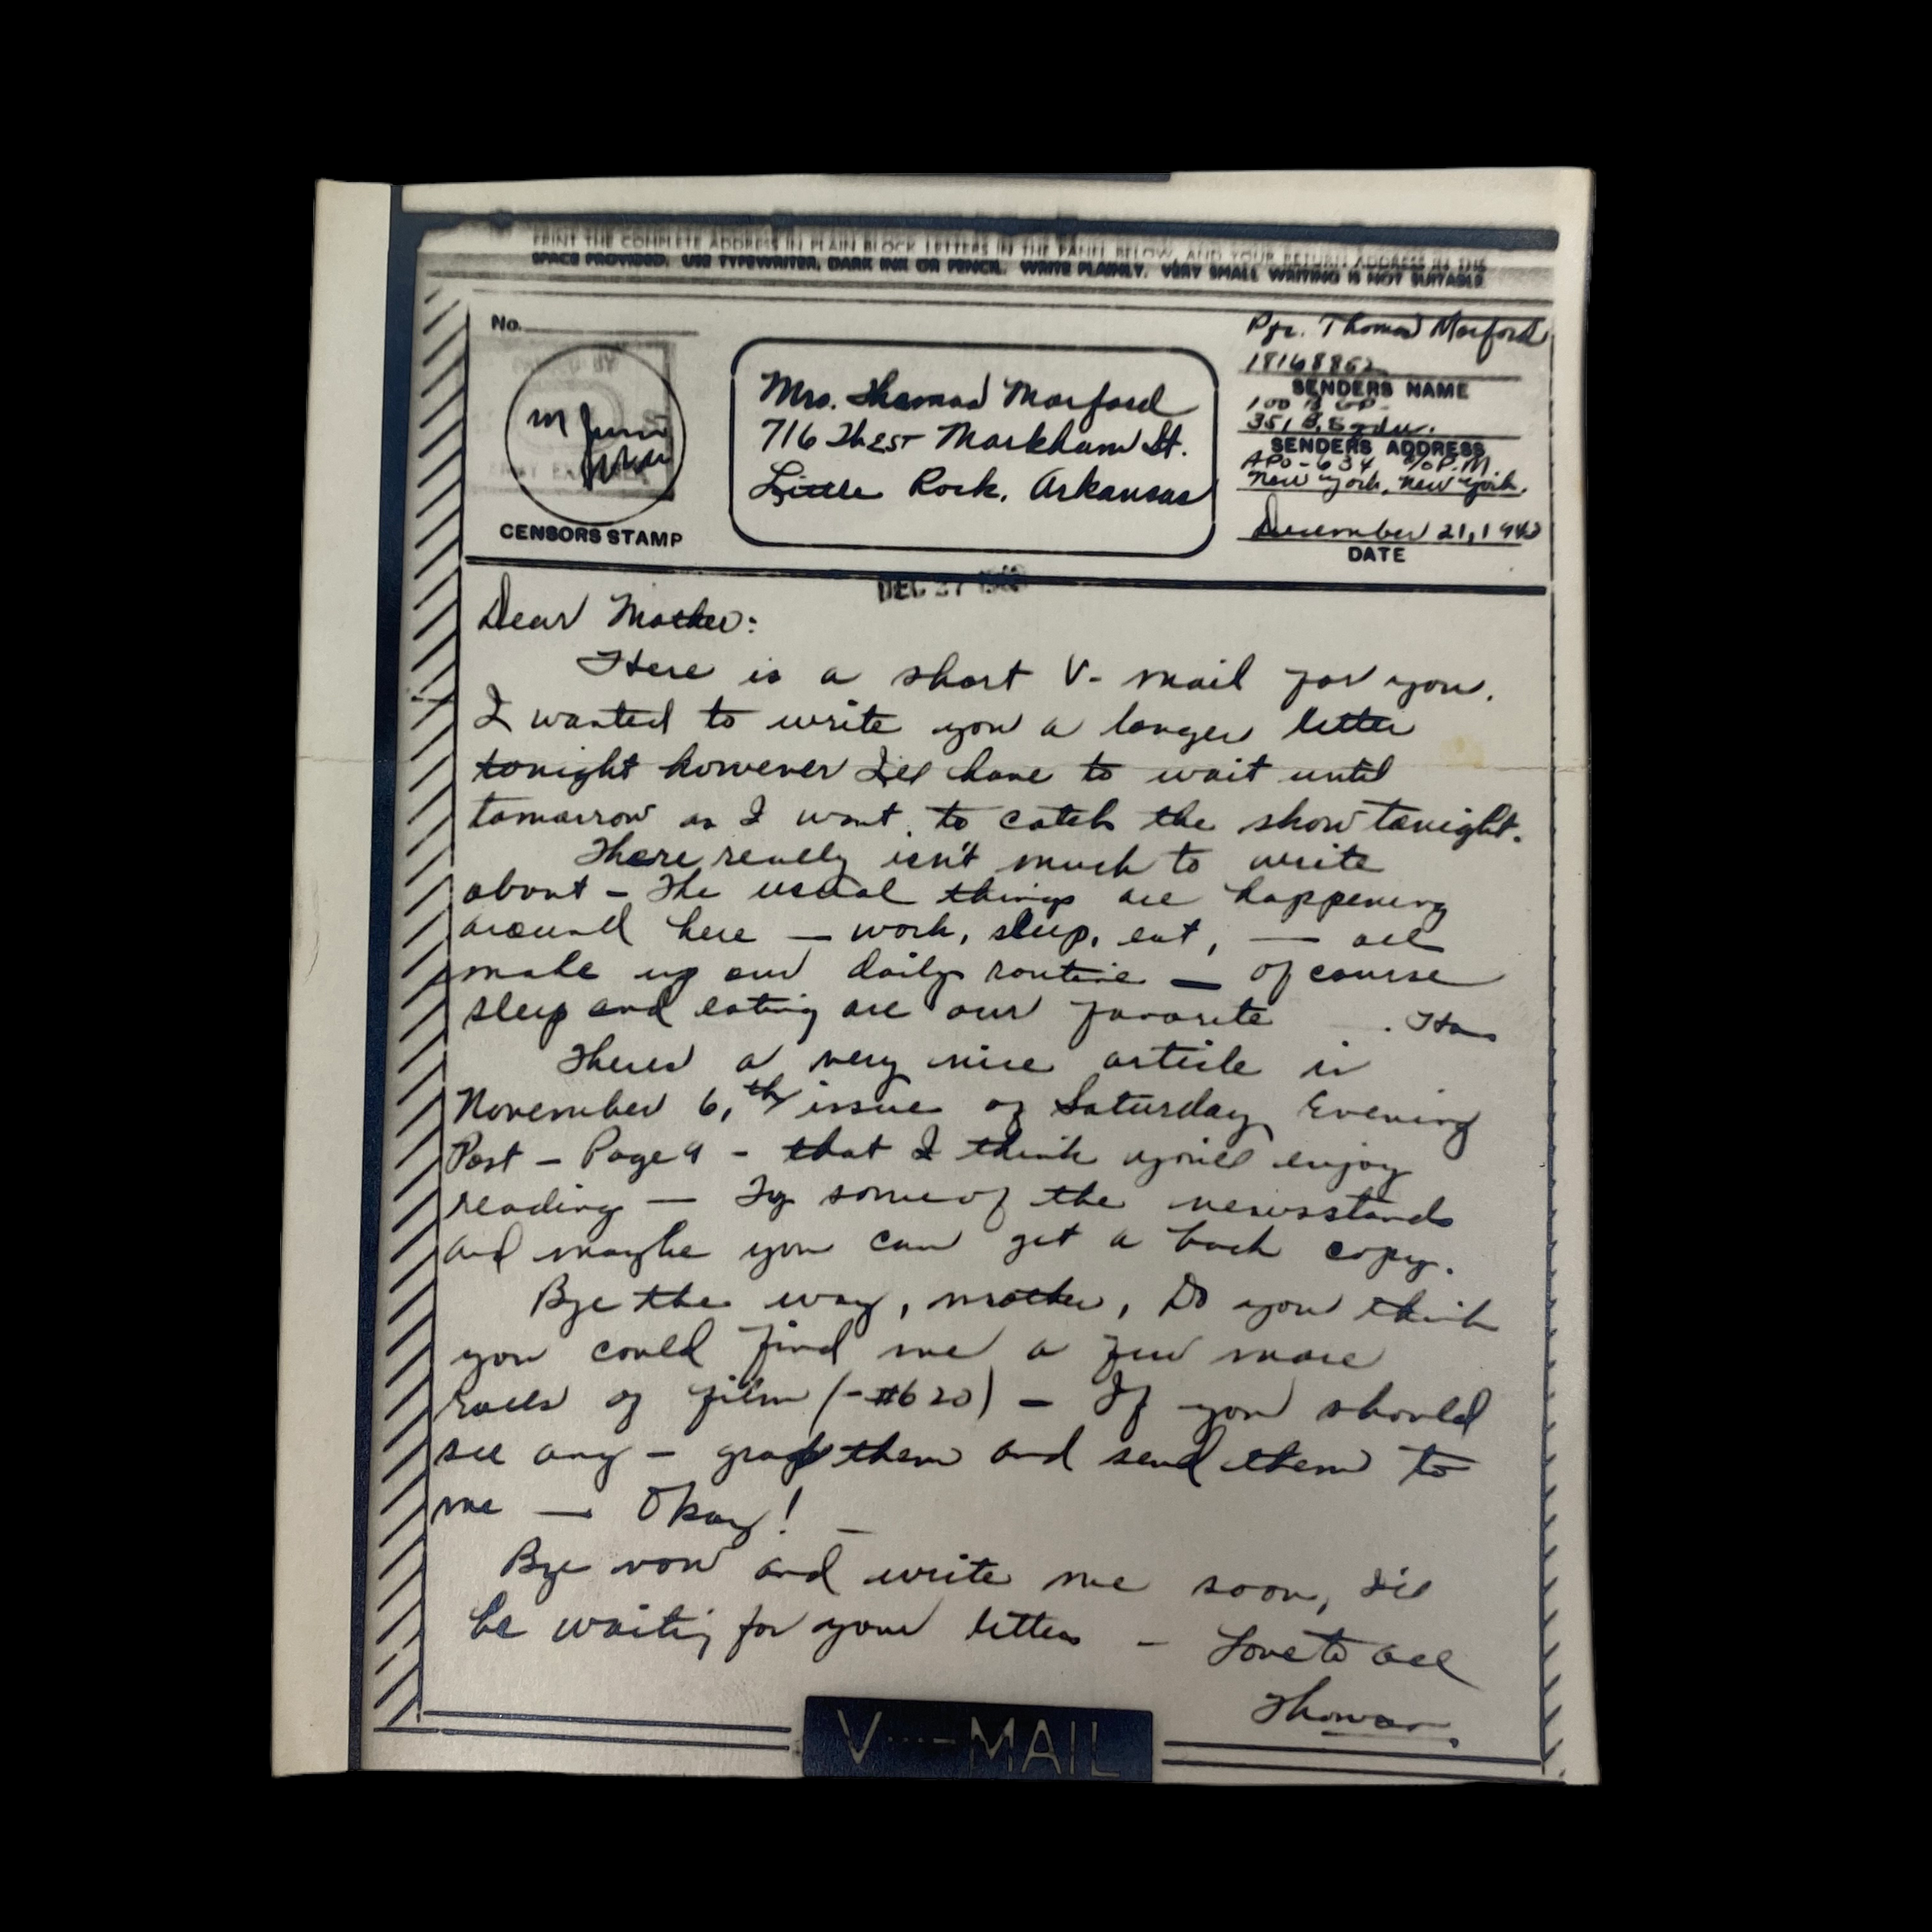 PRINT THE COMPLETE ADDRESS IN PLAIN BLOCK LETTERS IN THE PANEL BELOW, AND YOUR RETURN ADDRESS IN THE
SPACE PROVIDED. USE TYPEWRITER, DARK INK OR PENCIL. WRITE PLAINLY. VERY SMALL WRITING IS NOT SUITABLE.
No.
CENSORS STAMP
Mrs. Thomas Morford
716 West Markham St.
Little Rock, Arkansas
Pfc. Thomas Morford
18168862
SENDERS NAME
100 B GP-
351 B. Sqdn.
SENDERS ADDRESS
APO-634, c/o P.M.
New York, New York.
December 21, 1943
DATE
DEC 27
Dear Mother:
Here is a short V-mail for you.
I wanted to write you a longer letter
tonight however I'll have to wait until
tomorrow as I want to catch the show tonight.
There really isn't much to write
about — The usual things are happening
around here — work, sleep, eat, — all
make up our daily routine — of course
sleep and eating are our favorite . Ha
Theres a very nice article in
November 6,th issue of Saturday Evening
Post — Page 9 - that I think you'll enjoy
reading — Try some of the newsstands
and maybe you can get a back copy.
Bye the way, mother, Do you think
you could find me a few more
rolls of film (-#620) — If you should
see any — grab them and send them to
me — Okay! —
Bye now and write me soon, I'll
be waiting for your letters — Love to all
Thomas.
V···—MAIL